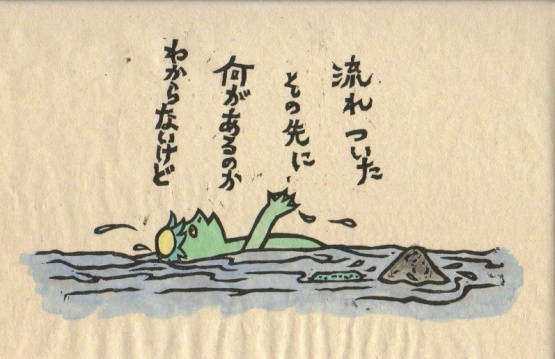 流れついた
その先に
何があるのか
わからないけど